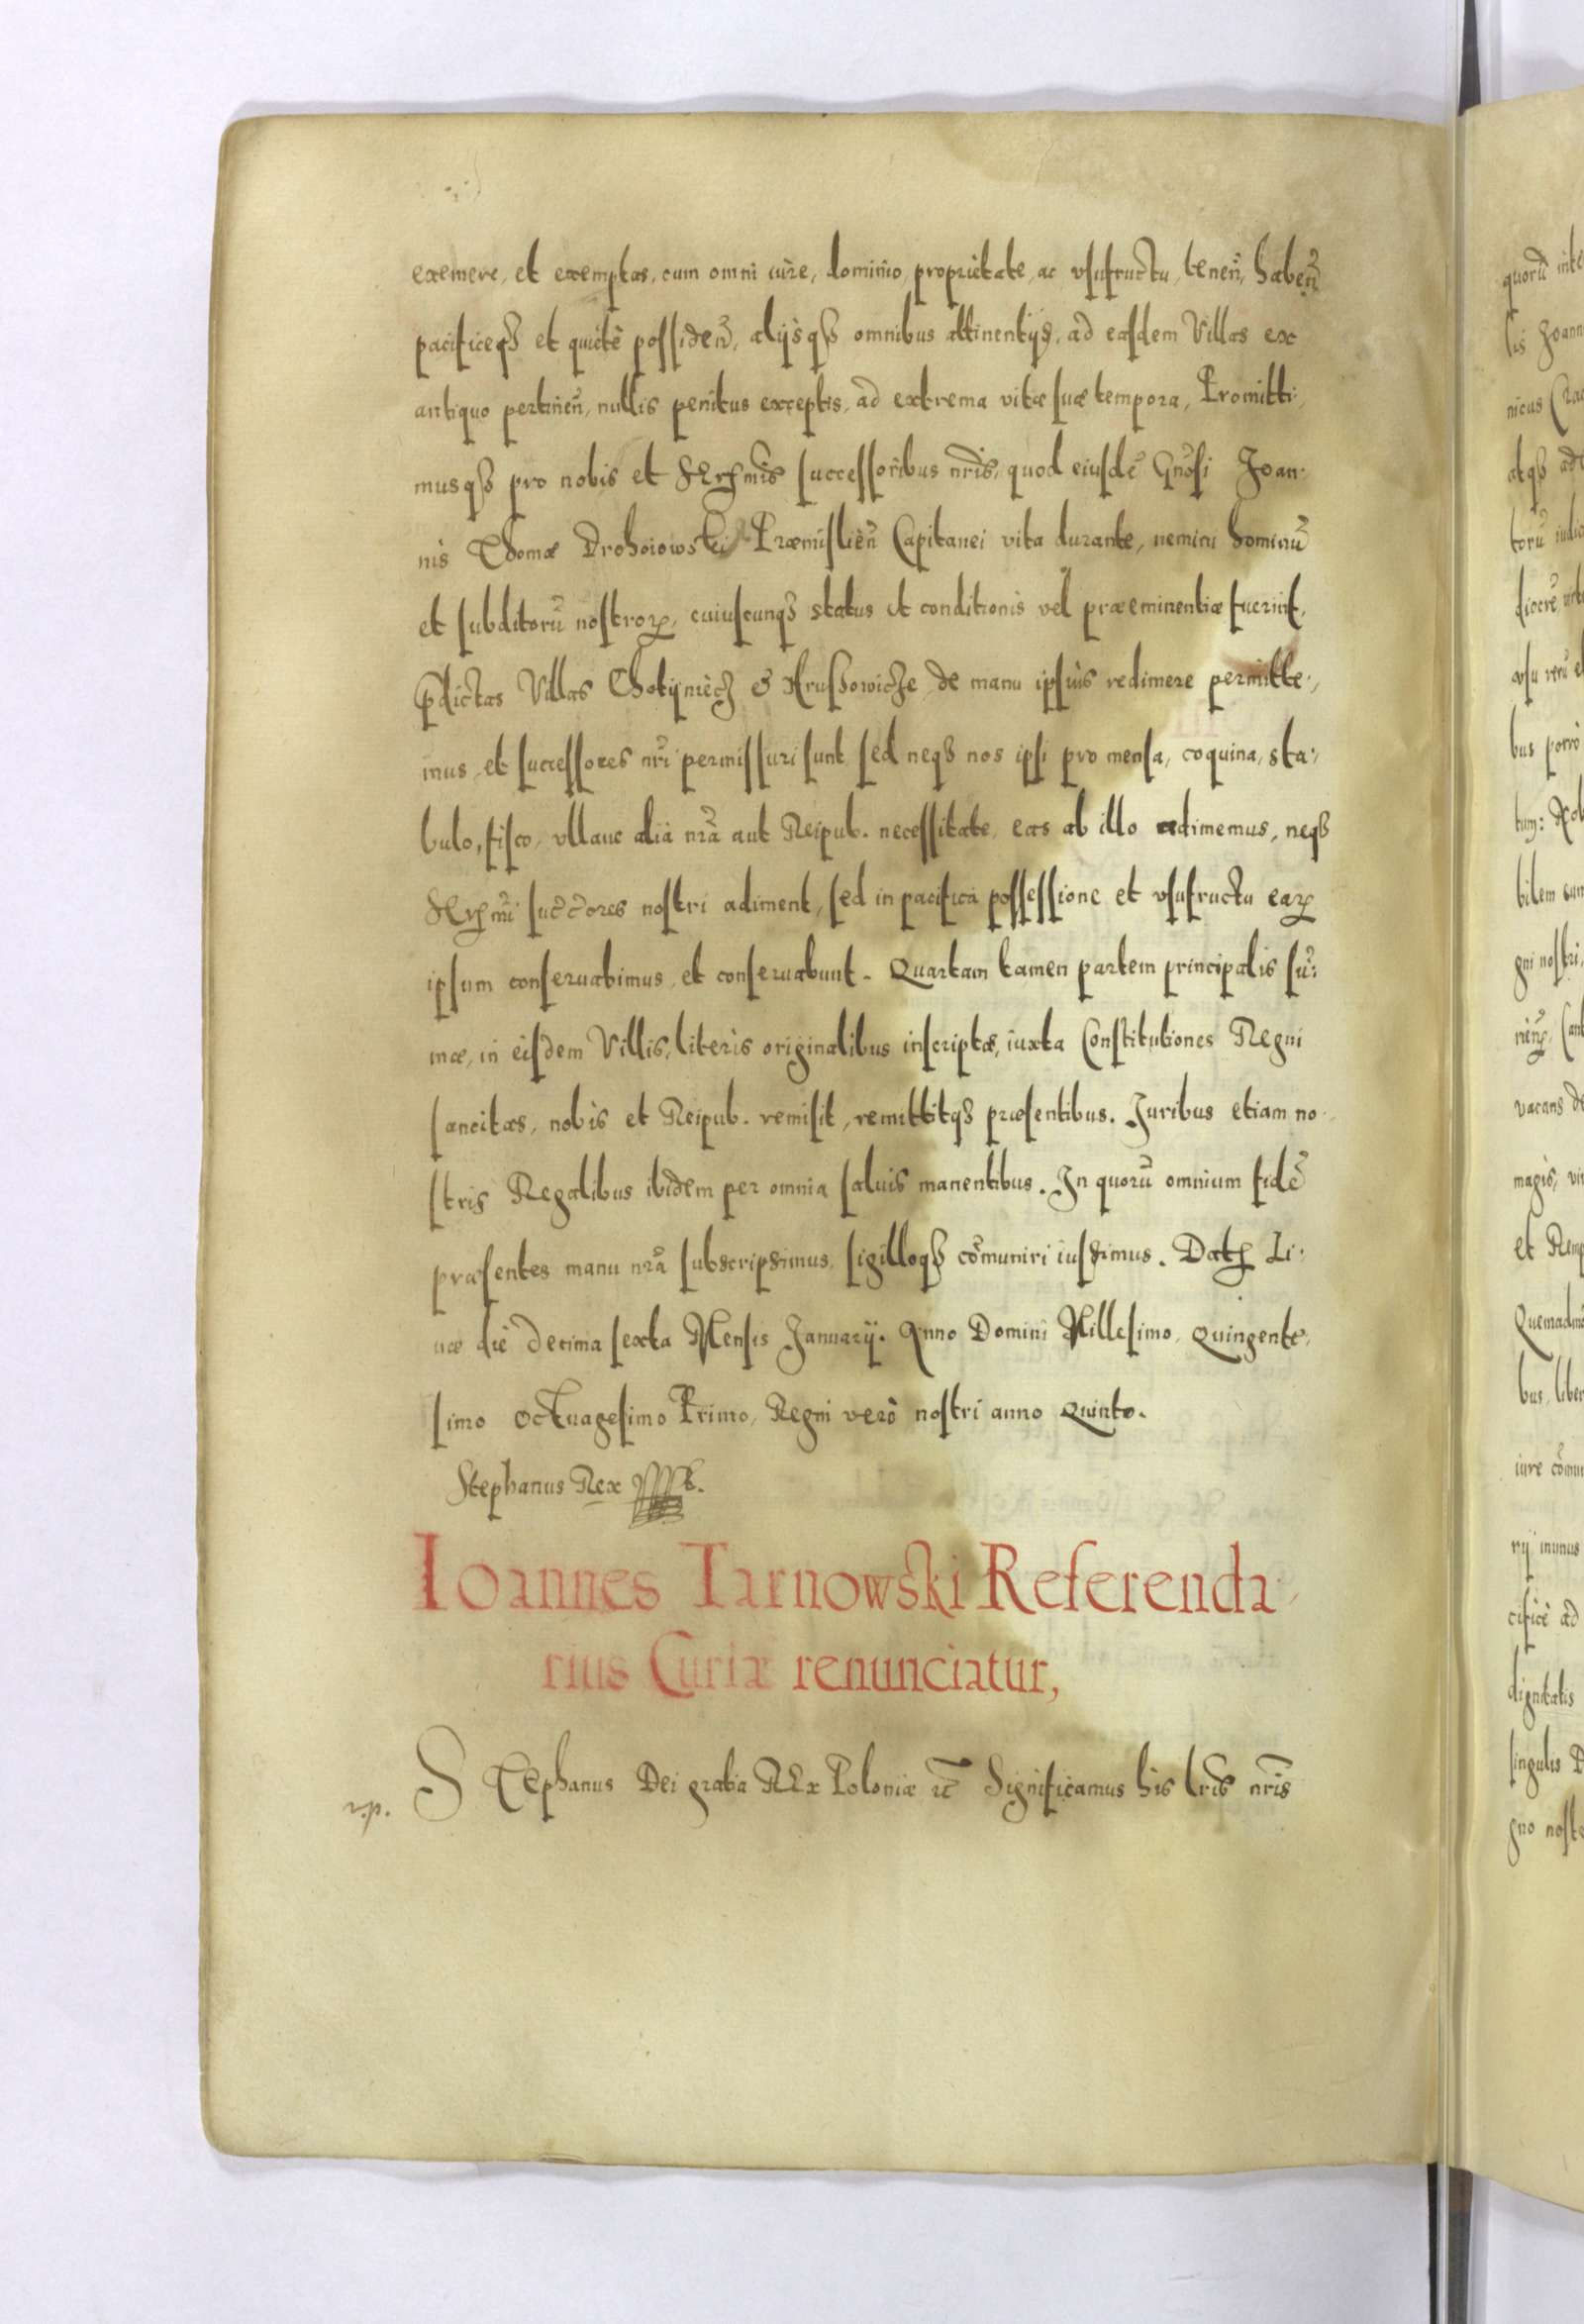 exemere, et exemptas, cum omni iure, dominio, proprietate, ac vsufructu, tenen̄, haben̄
pacificeqȝ et quietè possiden̄, alijsqȝ omnibus attinentijs, ad easdem Villas ex
antiquo pertinen̄, nullis penitus exceptis, ad extrema vitæ suæ tempora, Promitti:
musqȝ pro nobis et successoribus nr̄is, quod eiusdē Gn̄osi Joan:
nis Thomæ Drohoiowski Præmislien̄ Capitanei vita durante, nemini hominū
et subditorū nostroꝝ, cuiuscunqȝ status et conditionis vel præeminentiæ fuerint,
p̄dictas Villas Chotijniecz & Hrussowicze de manu ipsius redimere permitte:
mus, et successores nr̄i permissuri sunt sed neqȝ nos ipsi pro mensa, coquina, sta:
bulo, fisco, vllaue alia nr̄a aut Reipub. necessitate eas ab illo adimemus, neqȝ
nostri adiment, sed in pacifica possessione et vsufructu eaꝝ
ipsum conseruabimus, et conseruabunt. Quartam tamen partem principalis su̅:
mæ, in eisdem Villis, literis originalibus inscriptæ, iuxta Constitutiones Regni
sancitas, nobis et Reipub. remisit, remittitqȝ præsentibus. Juribus etiam no:
stris Regalibus ibidem per omnia saluis manentibus. In quorū omnium fidē
præsentes manu nr̄a subscripsimus, sigilloqȝ cōmuniri iussimus. Datꝫ Li:
uæ die decima sexta Mensis Januarij. Anno Domini Millesimo, Quingente:
simo Octuagesimo Primo, Regni verò nostri anno Quinto.
Stephanus Rex
Ioannes Tarnowski Referenda
rius Curiæ renunciatur,
STephanus Dei gratia REx Poloniæ ꝛc̄ Significamus his lr̄is nr̄is
r.p.